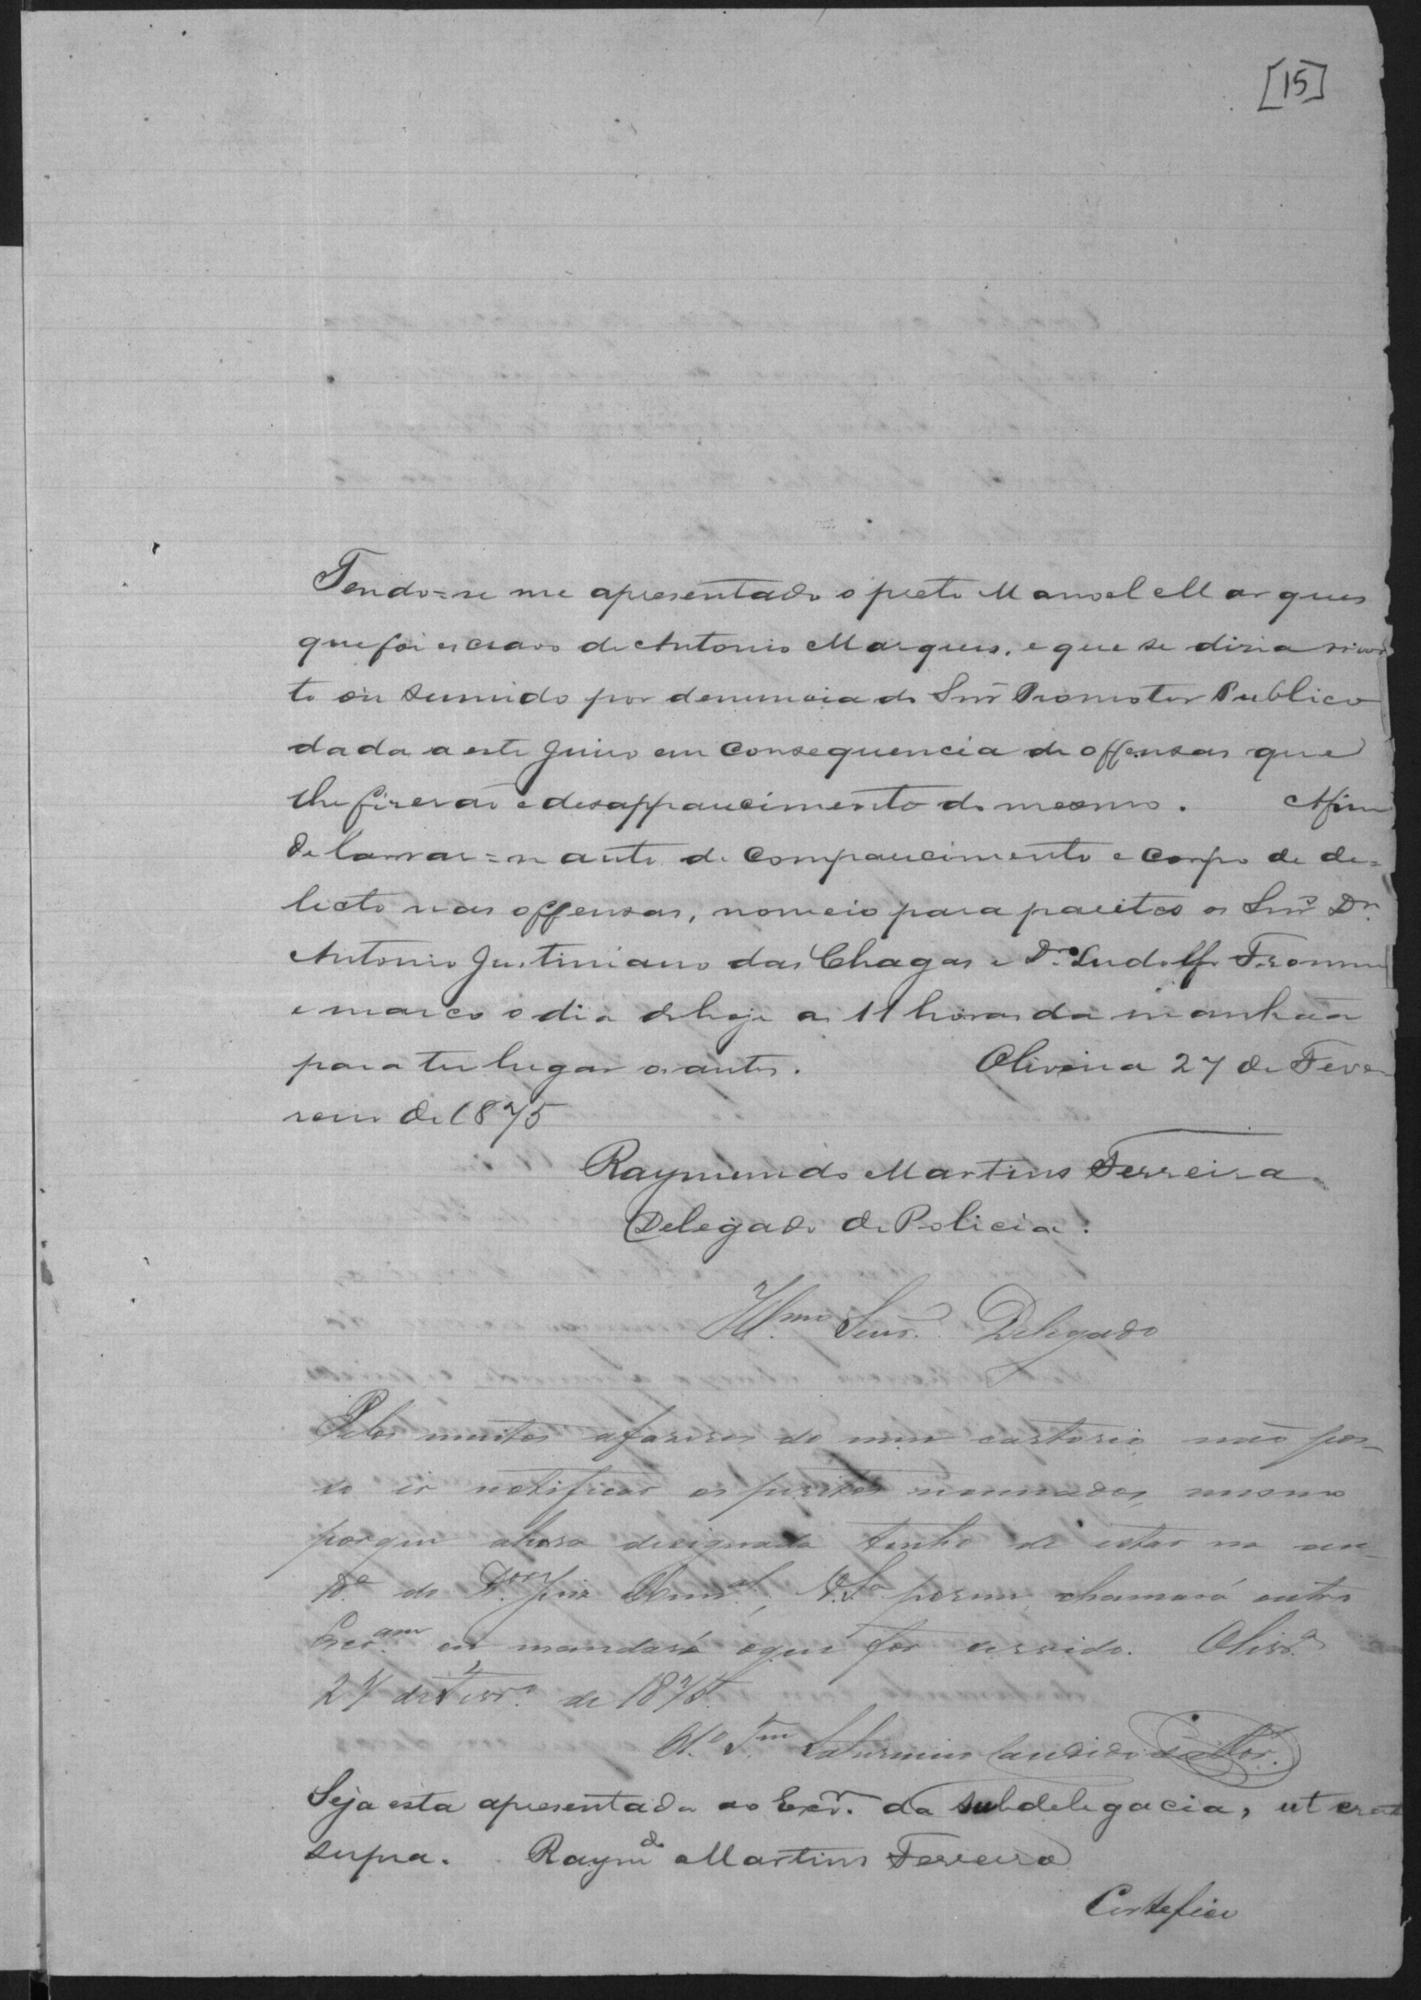 [15]
Tendo=se me apresentado o preto Manoel Marques
que foi escravo de Antonio Marques, e que se dizia mor
to ou sumido por denuncia do Snr Promotor Publico
dada a este Juizo em consequencia de offensas que
lhe fizerão e desapparecimento do mesmo. Afim
de lavrar=se auto de comparecimento e corpo de de=
licto nas offensas, nomeio para peritos os Snrs Dr.
Antonio Justiniano das Chagas e Dr. Ludolfo
e marco o dia de hoje as 11 horas da manhãa
para ter lugar os autos. Oliveira 27 de Feve
reiro de 1875
Raymundo Martins Ferreira
Delegado de Policia.
Illmo Senr. Delegado
Pelos muitos afazeres do meu cartorio não pos-
so ir notificar os peritos nomeados, mesmo
porque a hora designada tenho de estar na au-
da. do Dor. Juiz Al, V. Sa. porem chamará outro
Escram. ou mandará o que for servido. Olivra.
27 de Fevro. de 1875.
Candido
Seja esta apresentada ao Escrm. da subdelegacia, ut
supra. Raymdo Martins Ferreira
Certefico